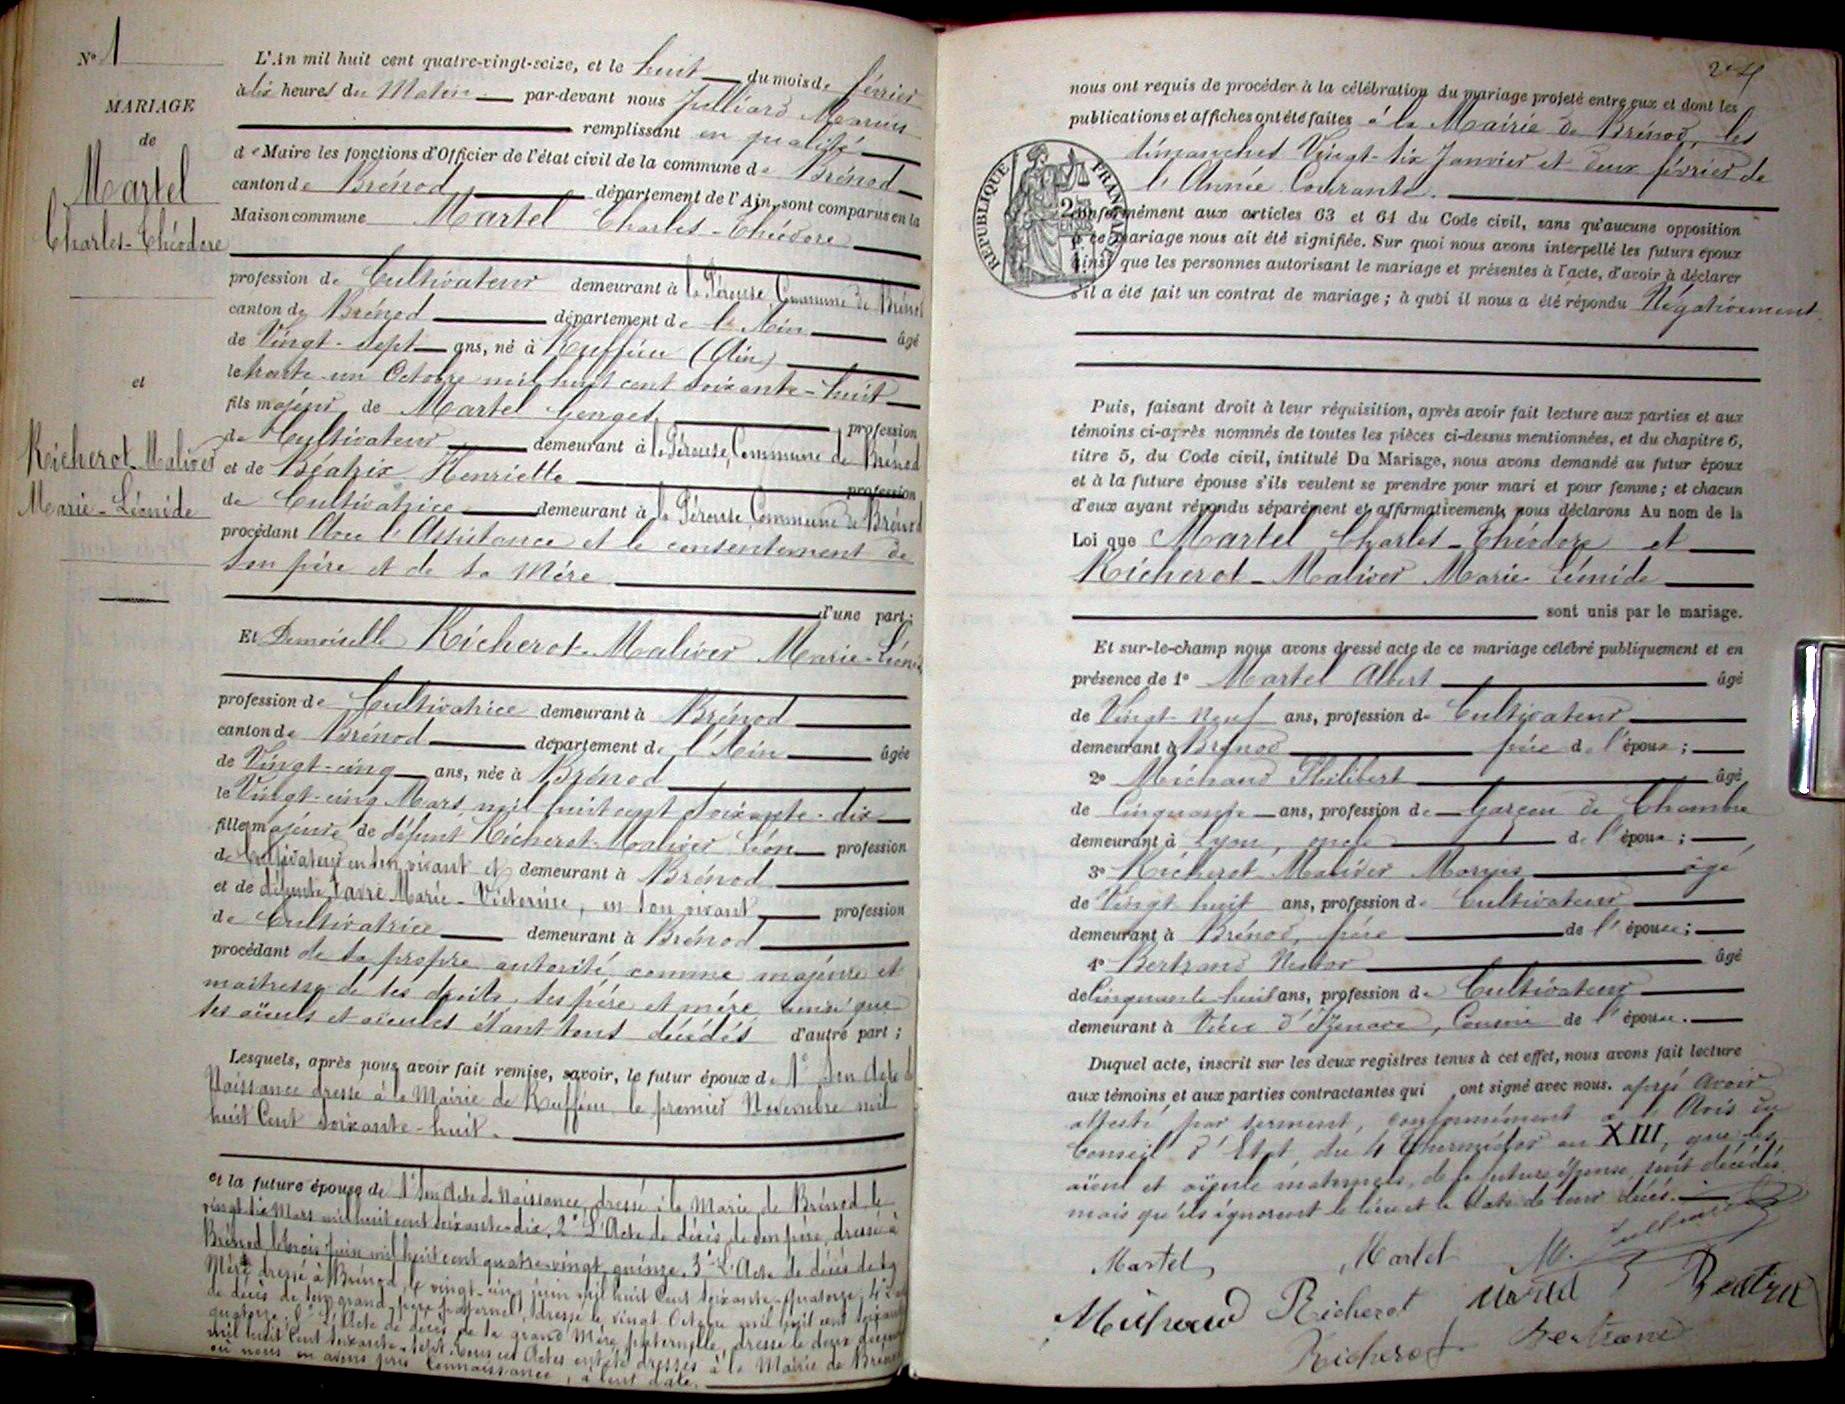 No 1
MARIAGE
de
Martel
Charles-Théodore
et
Richerot-Maliver
Marie-Léonide
L'An mil huit cent quatre-vingt-seize, et le huit du mois de février
à dix heures du Matin par-devant nous Julliard Marius
remplissant en qualité
de Maire les fonctions d'Officier de l'état civil de la commune de Brénod
canton de Brénod département de l'Ain, sont comparus en la
Maison commune Martel Charles-Théodore
profession de Cultivateur demeurant à la Pérouse, Commune de Brénod
canton de Brénod département de l'Ain âgé
de Vingt-sept ans, né à Ruffieu (Ain)
le trente-un Octobre mil huit cent soixante-huit
fils majeur de Martel Georges profession
de Cultivateur demeurant à la Pérouse, Commune de Brénod
et de Béatrix Henriette profession
de Cultivatrice demeurant à la Pérouse, Commune de Brénod
procédant Avec l'Assistance et le consentement de
son père et de sa Mère
d'une part;
Et Demoiselle Richerot-Maliver Marie-Léonide
profession de Cultivatrice demeurant à Brénod
canton de Brénod département de l'Ain âgée
de Vingt-cinq ans, née à Brénod
le Vingt-cinq Mars mil huit cent soixante-dix
fille majeure de défunt Richerot-Maliver Léon profession
de Cultivateur en son vivant et demeurant à Brénod
et de défunte Favre Marie-Victorine, en son vivant profession
de Cultivatrice demeurant à Brénod
procédant de sa propre autorité comme majeure et
maîtresse de ses droits, ses père et mère ainsi que
ses aïeuls et aïeules étant tous décédés d'autre part;
Lesquels, après nous avoir fait remise, savoir, le futur époux de 1° Son Acte de
Naissance dressé à la Mairie de Ruffieu le premier Novembre mil
huit Cent soixante-huit.
et la future épouse de 1° Son Acte de Naissance, dressé à la Mairie de Brénod le
vingt six Mars mil huit cent soixante-dix, 2° L'Acte de décès de son père, dressé à
Brénod le trois Juin mil huit cent quatre-vingt-quinze. 3° L'Acte de décès de sa
Mère dressé à Brénod, le vingt-un juin mil huit Cent soixante-quatorze; 4°
de décès de son grand-père paternel, dressé le vingt Octobre mil huit cent soixante
quatorze. 5° L'Acte de décès de sa grand'Mère paternelle, dressé le deux
mil huit Cent soixante-sept. Tous ces Actes ont été dressés à la Mairie de Brénod
où nous en avons pris Connaissance, à leur date.
nous ont requis de procéder à la célébration du mariage projeté entre eux et dont les
publications et affiches ont été faites à la Mairie de Brénod, les
dimanches Vingt-six Janvier et deux février de
l'Année Courante.
RÉPUBLIQUE FRANÇAISE
conformément aux articles 63 et 64 du Code civil, sans qu'aucune opposition
à ce mariage nous ait été signifiée. Sur quoi nous avons interpellé les futurs époux
ainsi que les personnes autorisant le mariage et présentes à l'acte, d'avoir à déclarer
s'il a été fait un contrat de mariage; à quoi il nous a été répondu Négativement.
Puis, faisant droit à leur réquisition, après avoir fait lecture aux parties et aux
témoins ci-après nommés de toutes les pièces ci-dessus mentionnées, et du chapitre 6,
titre 5, du Code civil, intitulé Du Mariage, nous avons demandé au futur époux
et à la future épouse s'ils veulent se prendre pour mari et pour femme; et chacun
d'eux ayant répondu séparément et affirmativement, nous déclarons Au nom de la
Loi que Martel Charles-Théodore et
Richerot-Maliver Marie-Léonide
sont unis par le mariage.
Et sur-le-champ nous avons dressé acte de ce mariage célébré publiquement et en
présence de 1° Martel Albert âgé
de Vingt-Neuf ans, profession de Cultivateur
demeurant à Brénod frère de l'époux;
2° Michaud Philibert âgé
de Cinquante ans, profession de Garçon de Chambre
demeurant à Lyon, oncle de l'époux;
3° Richerot Maliver Marius âgé
de Vingt huit ans, profession de Cultivateur
demeurant à Brénod, frère de l'épouse;
4° Bertrand Nestor âgé
de Cinquante-huit ans, profession de Cultivateur
demeurant à Vieu d'Izenave, Cousin de l'épouse.
Duquel acte, inscrit sur les deux registres tenus à cet effet, nous avons fait lecture
aux témoins et aux parties contractantes qui ont signé avec nous. après Avoir
attesté par serment, conformément à l'Avis du
Conseil d'Etat du 4 Thermidor an XIII, que les
aïeul et aïeule maternels de la future épouse, sont décédés
mais qu'ils ignorent le lieu et la date de leur décès.
Martel Martel M. Julliard
Michaud Richerot Martel Béatrix
Richerot Bertrand